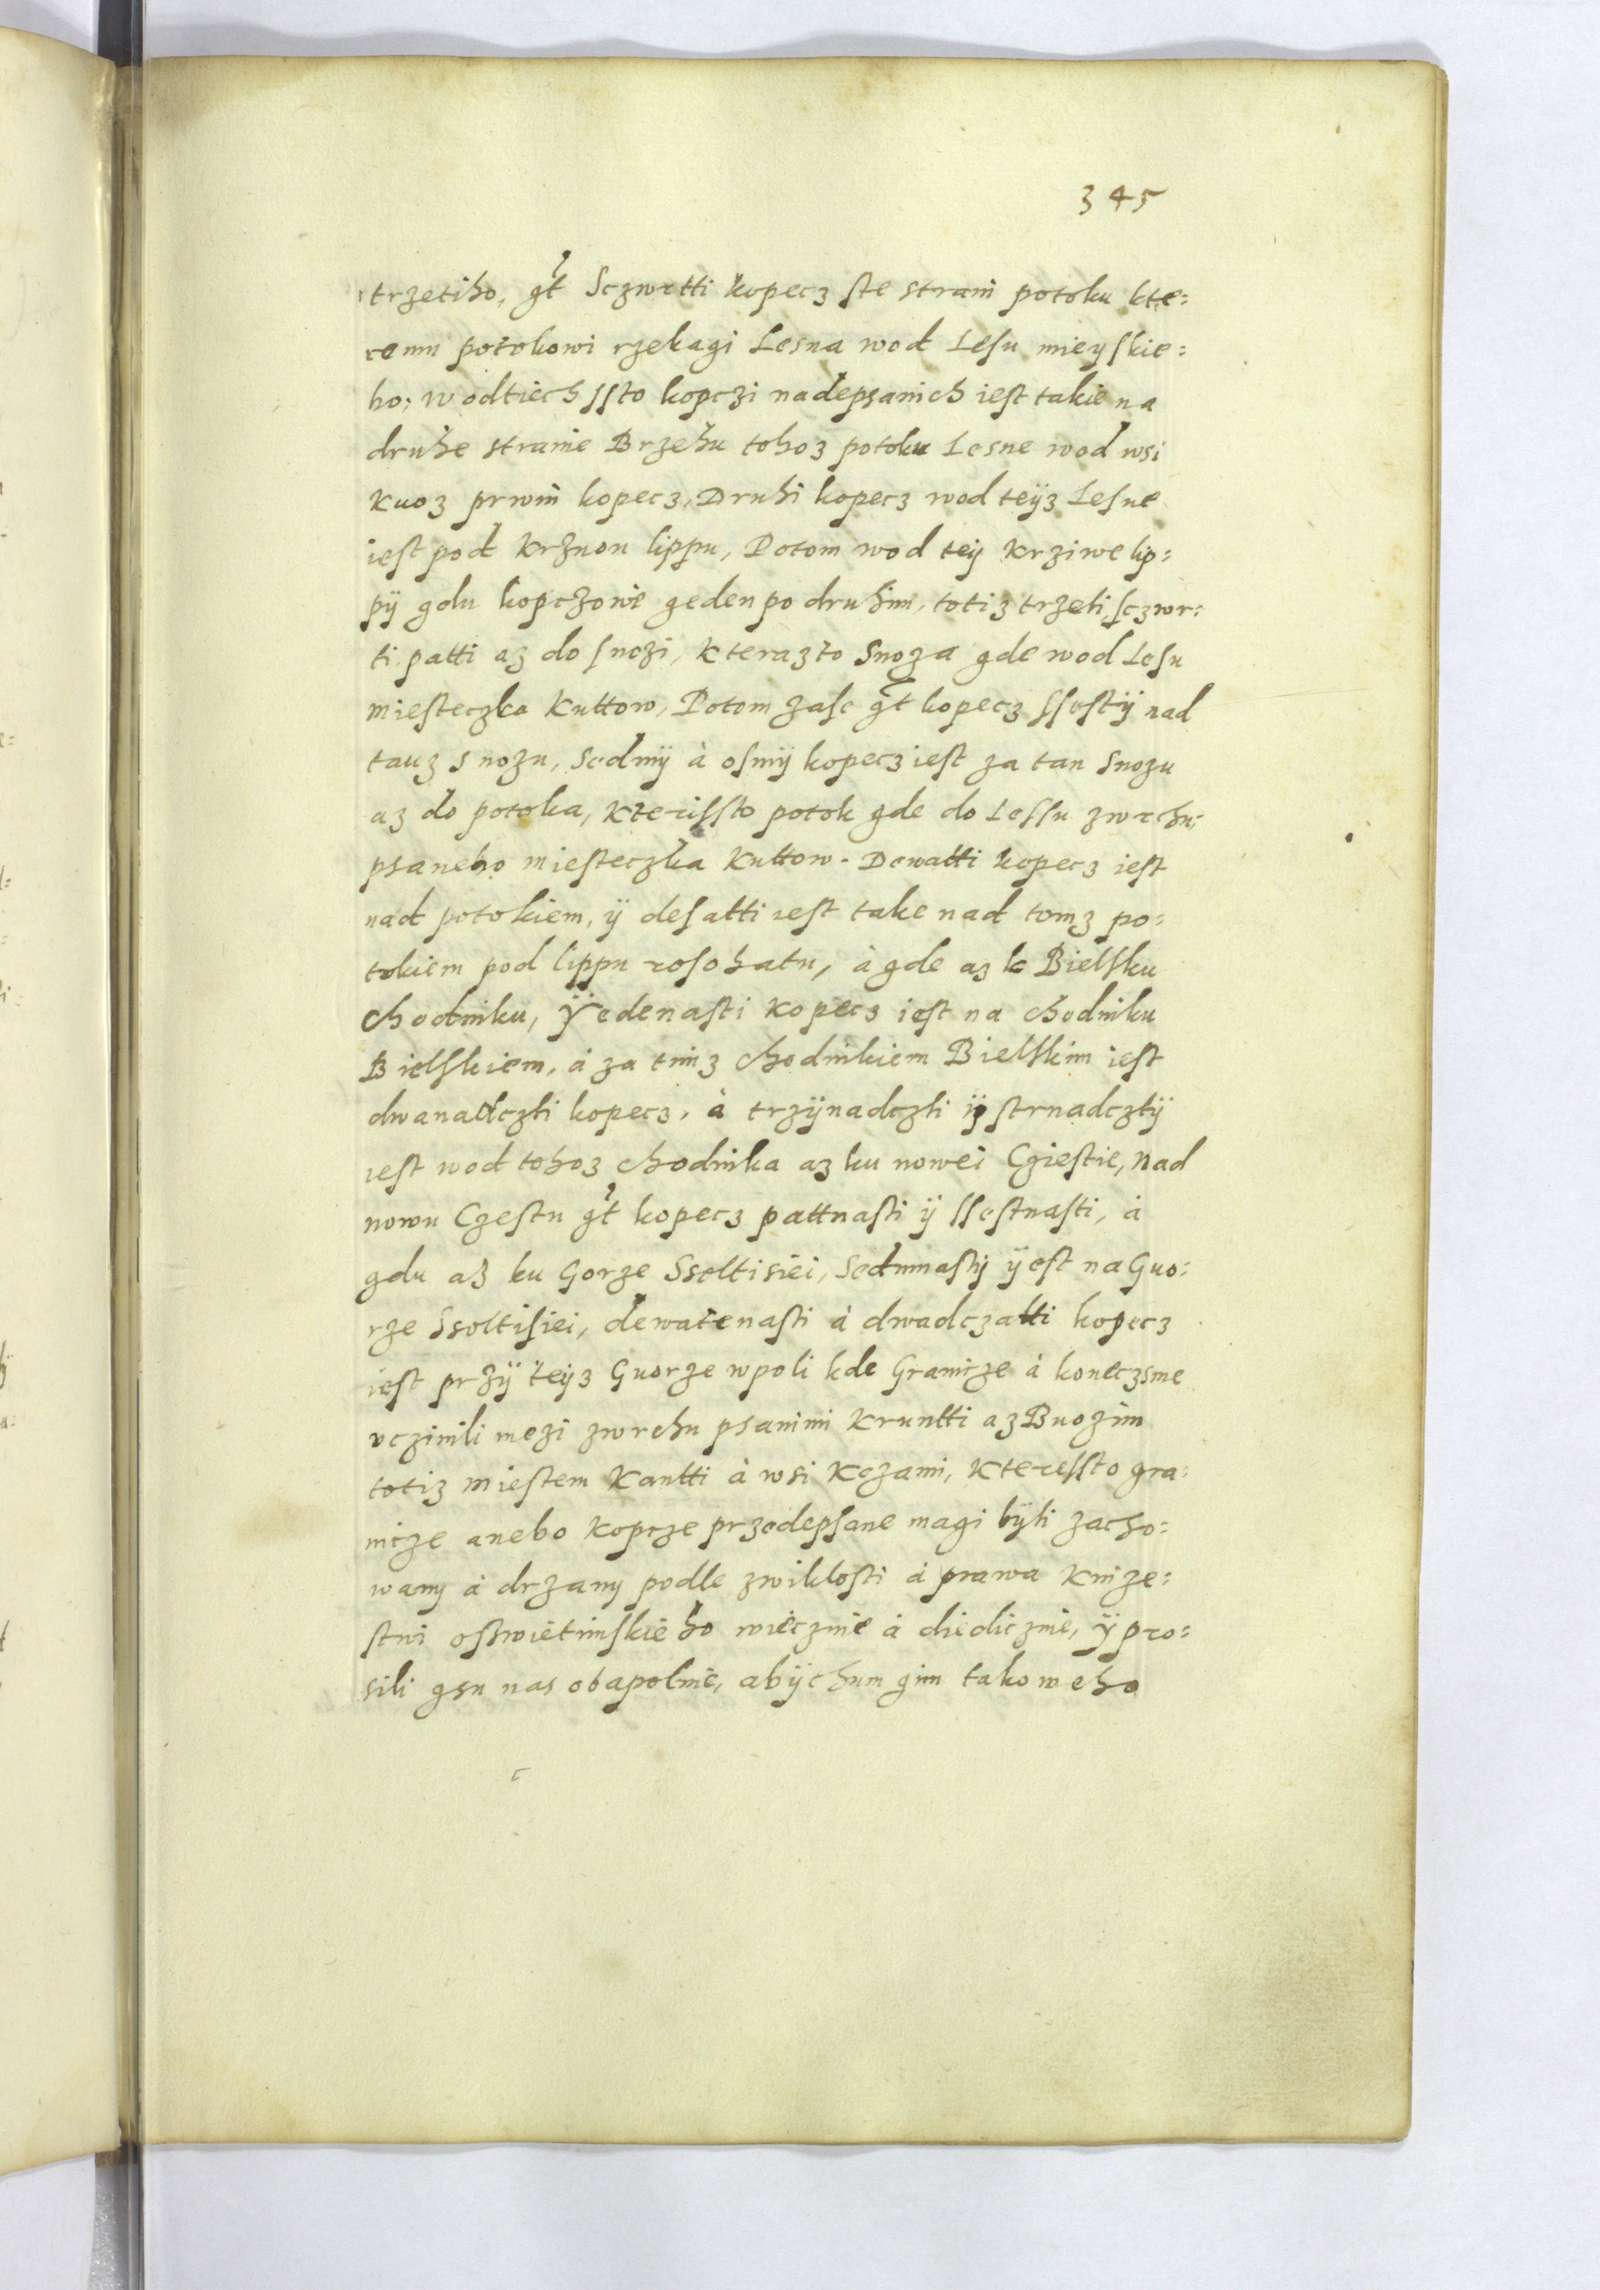 345
trzetiho, gt Sczwrtti kopecz ste strani potoku kte:
remu potokowi rzekagi Lesna wod Lesu mieyskie:
ho: wodtiech ssto kopczi nadepsanich iest takie na
druhe stranie Brzehu tohoz potoku Lesne wod wsi
Kuoz prwni kopecz, Druhi kopecz wod teÿz Lesne
iest pod Krzuou lippu, Potom wod teÿ Krziwe lip:
pÿ gdu kopczowe geden po druhim, totiz trzeti sczwr:
ti patti az do snozi, Kterazto Snoza gde wod Lesu
miesteczka Kuttow, Potom zasc gt kopecz ssestÿ nad
tauz snozu, Sedmÿ à osmÿ kopecz iest za tau Snozu
az do potoka, Kterissto potok gde do Lessu zwrchu:
psaneho miesteczka Kuttow. Dewatti kopecz iest
nad potokiem, ÿ desatti iest take nad tomz po:
tokiem pod lippu rosohatu, à gde az k Bielsku
chodniku, Ÿedenasti kopecz iest na chodniku
Bielskiem, à za timz chodnikiem Bielskim iest
dwanadczti kopecz, à trzÿnadczti ÿ strnadcztÿ
iest wod tohoz chodnika az ku nowei Cziestie, nad
nowu Czestu gt kopecz pattnasti ÿ ssestnasti, à
gdu az ku Gorze Ssoltisiei, Sedmnastÿ ÿest na Guo:
rze Ssoltisiei, dewatenasti à dwadczatti kopecz
iest przÿ teÿz Guorze wpoli kde Granicze à koneczsme
vczinili mezi zwrchu psanimi Kruntti az Buozim
totiz miestem Kantti à wsi Kozami, Kteressto gra:
nicze anebo kopcze przedepsane magi bÿti zacho:
wany à drzany podle zwiklosti à prawa Knize:
stwi osswietimskieho wiecznie à diedicznie, ÿ pro:
sili gsu nas obapolnie, abÿchum gim takoweho